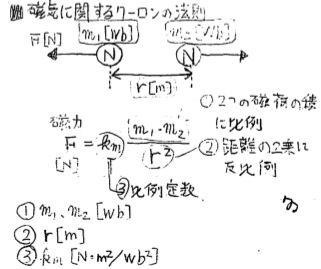 磁気に関するクーロンの法則
F[N] m₁[Wb] m₂[Wb]
N N
r[m]
磁力
F = km m₁・m₂ / r²
[N]
① 2つの磁荷の積に比例
② 距離の2乗に反比例
③ 比例定数
① m₁、m₂ [Wb]
② r[m]
③ km [N=m²/Wb²]